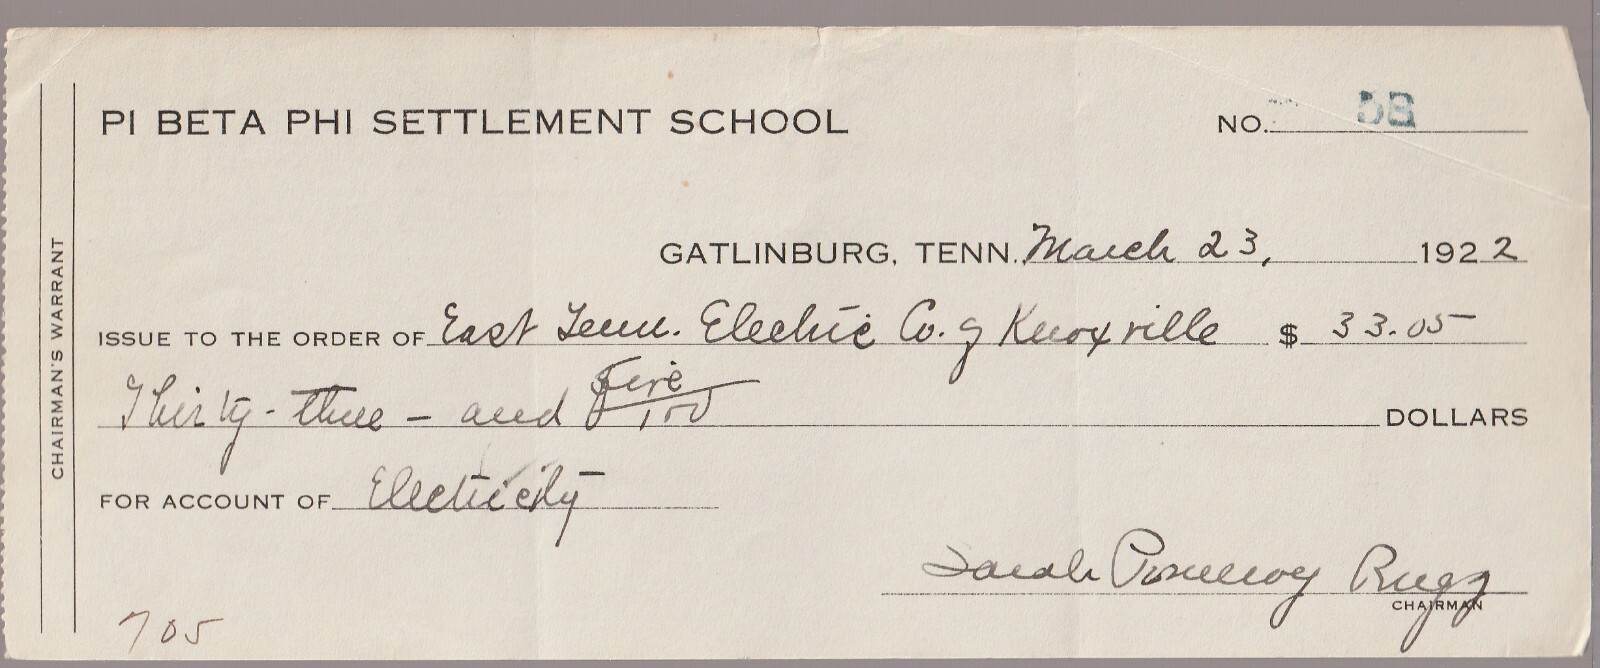 PI BETA PHI SETTLEMENT SCHOOL NO. 58
GATLINBURG, TENN. March 23, 1922
ISSUE TO THE ORDER OF East Tenn. Electric Co. of Knoxville $ 33.05
Thirty-three - and five/100 DOLLARS
FOR ACCOUNT OF Electricity
Sarah Pomeroy Rugg
CHAIRMAN
705
CHAIRMAN'S WARRANT